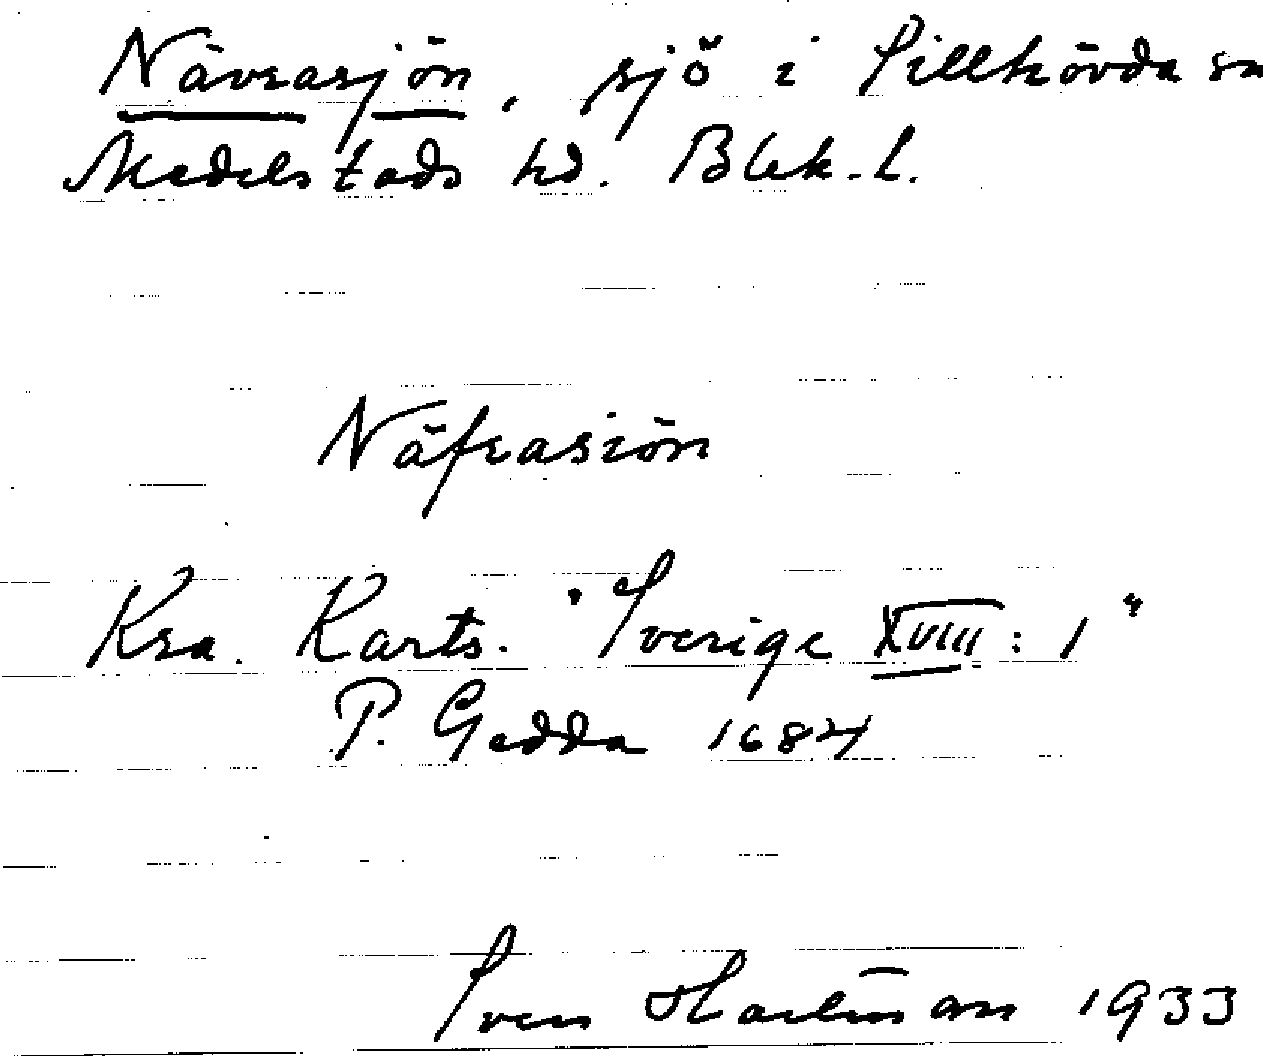 Nävrasjön, sjö i Sillhövda sn
Medelstads hd. Blek. l.
Näfrasiön
Kra. Karts. "Sverige XVIII: 1"
P. Gedda 1684
Sven Hallman 1933